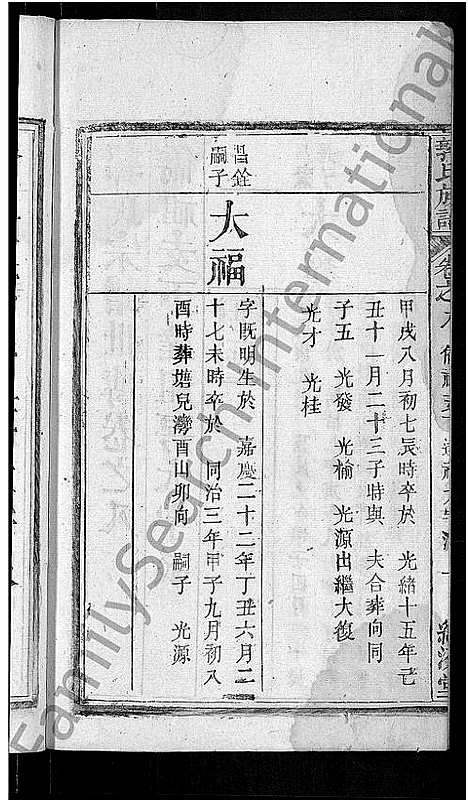 甲戌八月初七辰時卒於　光緒十五年己
丑十一月二十三子時與　夫合葬向同
子五　光發　光楡　光源出繼大復
光才　光桂
昌銓
嗣子
大福
字既明生於　嘉慶二十二年丁丑六月二
十七未時卒於　同治三年甲子九月初八
酉時葬塘兒灣酉山卯向　嗣子　光源
氏族譜
卷之
FamilySearch International